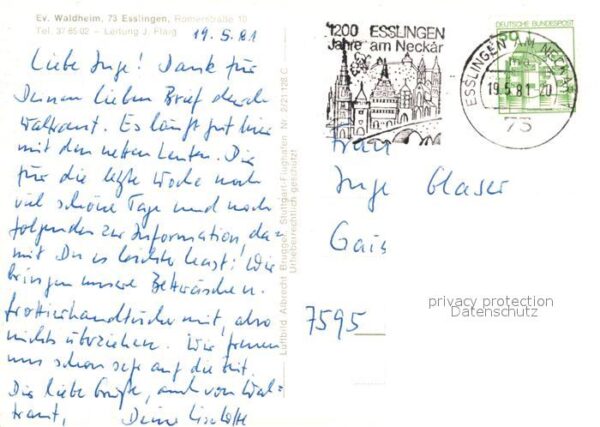 Ev. Waldheim, 73 Esslingen, Römerstraße 10
Tel. 37 85 02 – Leitung J. Flaig
19.5.81
Liebe Inge! Dank für
Deinen lieben Brief durch
Waltraut. Es läuft gut hier
mit den netten Leuten. Dir
für die letzte Woche noch
viel schöne Tage und noch
folgendes zur Information, da=
mit Du es leichter hast: Wir
bringen unsere Bettwäsche u.
Frottierhandtücher mit, also
nichts überziehen. Wir freuen
uns schon sehr auf die Zeit.
Dir liebe Grüße, auch von Wal=
traut, Deine Liselotte
Luftbild Albrecht Brugger, Stuttgart-Flughafen Nr. 2/21128 C
Urheberrechtlich geschützt!
1200 ESSLINGEN
Jahre am Neckar
ESSLINGEN AM NECKAR
19.5.81-20
73
DEUTSCHE BUNDESPOST
50
Frau
Inge Glaser
Gais
7595
privacy protection
Datenschutz